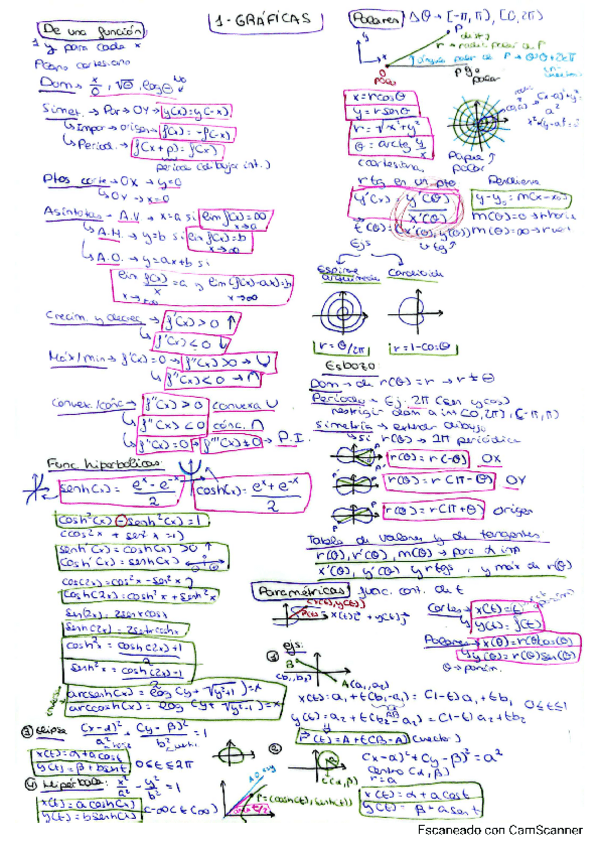 1-GRÁFICAS
De una función
1 y para cada x
Plano cartesiano
Dom → x/0, √0, log 0
Simet. → Par → OY → y(x)=y(-x)
↳ Impar → origen → f(x)=-f(-x)
↳ Period. → f(x+p)=f(x)
periodo (dibujar int.)
Ptos corte → OX → y=0
↳ OY → x=0
Asíntotas → A.V → x=a si lim f(x)=∞
x→a
↳ A.H. → y=b si lim f(x)=b
x→∞
↳ A.O. → y=ax+b si
lim f(x)/x =a y lim (f(x)-ax)=b
x→±∞ x→∞
Crecim. y decrec. → f'(x)>0 ↑
↳ f'(x)<0 ↓
Máx/min → f'(x)=0 → f''(x)>0 → ∪
↳ f''(x)<0 → ∩
Convex./conc → f''(x)>0 convexa ∪
↳ f''(x)<0 cónc. ∩
↳ f''(x)=0 → f'''(x)≠0 → P.I.
Func. hiperbólicas
senh(x)= (e^x-e^-x)/2 cosh(x)= (e^x+e^-x)/2
cosh²(x)-senh²(x)=1
(cos²x + sen²x =1)
senh'(x)=cosh(x)>0 ↑
cosh'(x)=senh(x)
cos(2x)=cos²x-sen²x
cosh(2x)=cosh²x+senh²x
sen(2x)=2senxcosx
senh(2x)=2senhxcoshx
cosh²x = (cosh(2x)+1)/2
senh²x = (cosh(2x)-1)/2
arcsenh(x)=log(y+√y²+1)=x
arccosh(x)=log(y+√y²-1)=x
③ elipse (x-α)²/a² + (y-β)²/b² =1
x(t)=α+acost
y(t)=β+bsent
0≤t≤2π
④ hipérbola: x²/a² - y²/b² =1
x(t)=acosh(t)
y(t)=bsenh(t)
(-∞<t<∞)
P=(cosh(t),senh(t))
Polares Δθ → [-π,π), [0,2π)
r → radio polar de P
polo
eje polar
x=rcosθ
y=rsenθ
r=√x²+y²
θ=arctg y/x
(cartesiana)
Papel polar
rtg en un pto
y'(x)= y'(θ)/x'(θ)
Pendiente
y-y₀=m(x-x₀)
m(θ)=0 → rhoriz
t(θ)=(x'(θ),y'(θ)) m(θ)=∞ → rvert
Ejs
Espiral arquímedes Cardioide
r=θ/2π r=1-cosθ
Esbozo:
Dom → de r(θ)=r → r≠θ
Periodo → Ej. 2π (sen y cos)
restrigir dom a int [0,2π), [-π,π)
Simetría → extender dibujo
↳ si r(θ) → 2π periódica
r(θ)=r(-θ) OX
r(θ)=r(π-θ) OY
r(θ)=r(π+θ) origen
Tabla de valores y de tangentes
r(θ), r'(θ), m(θ) → para θ imp
x'(θ), y'(θ) y rtgs, y máx de r(θ)
Paramétricas func. cont. de t
(x(t),y(t))
x(t)i+y(t)j
Cartes → x(t)=t
y(t)=f(t)
Polares → x(θ)=r(θ)cos(θ)
y(θ)=r(θ)sen(θ)
ejs:
① B (b₁,b₂) A(a₁,a₂)
x(t)=a₁+t(b₁-a₁)=(1-t)a₁+tb₁ 0≤t≤1
y(t)=a₂+t(b₂-a₂)=(1-t)a₂+tb₂
P=A+t(B-A) (vector)
②
c(α,β)
(x-α)²+(y-β)²=a²
centro (α,β)
r=a
x(t)=α+acost
y(t)=β+asent
Escaneado con CamScanner